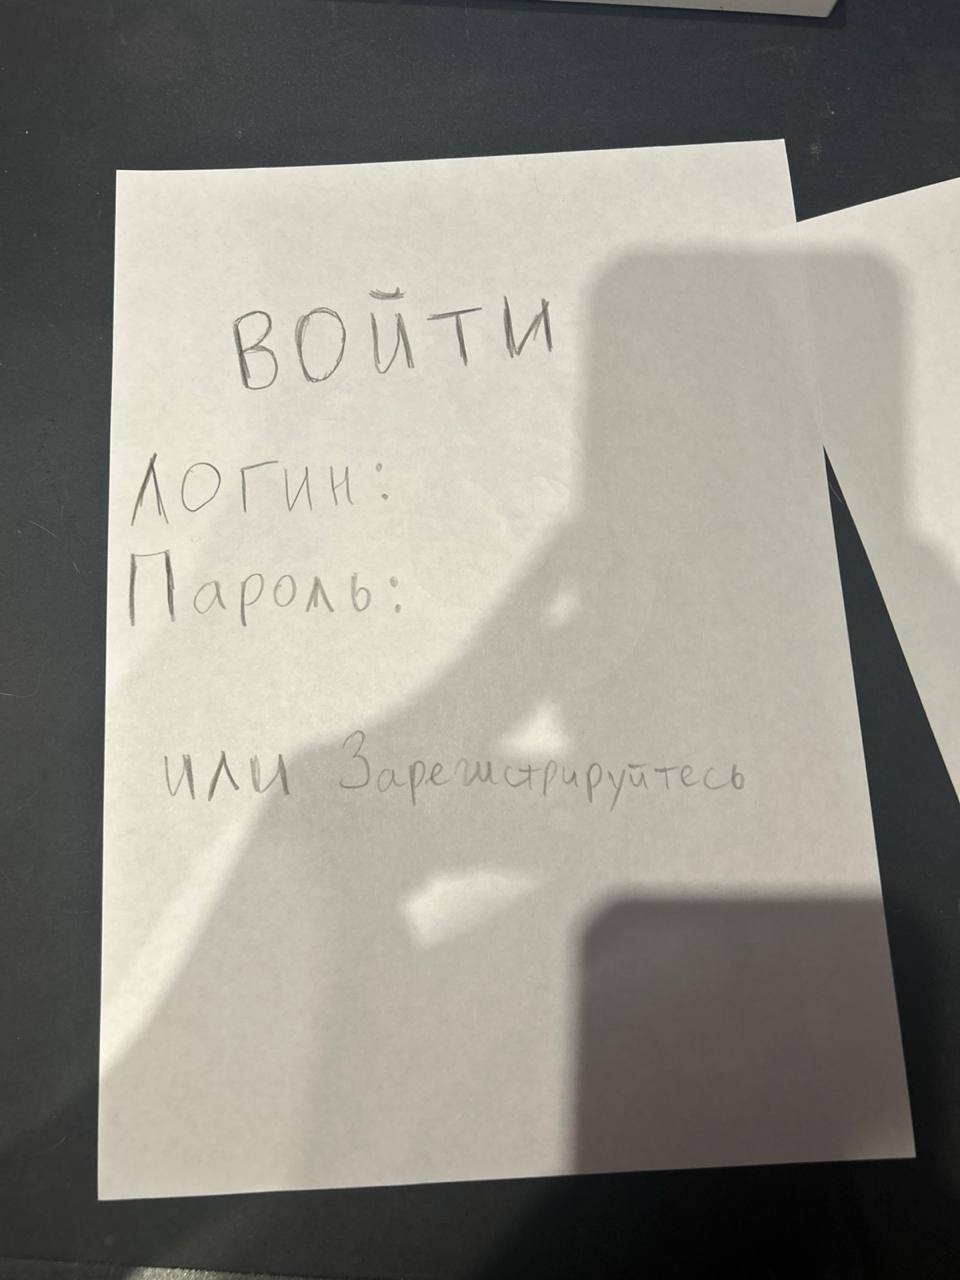 ВОЙТИ
Логин:
Пароль:
или Зарегистрируйтесь